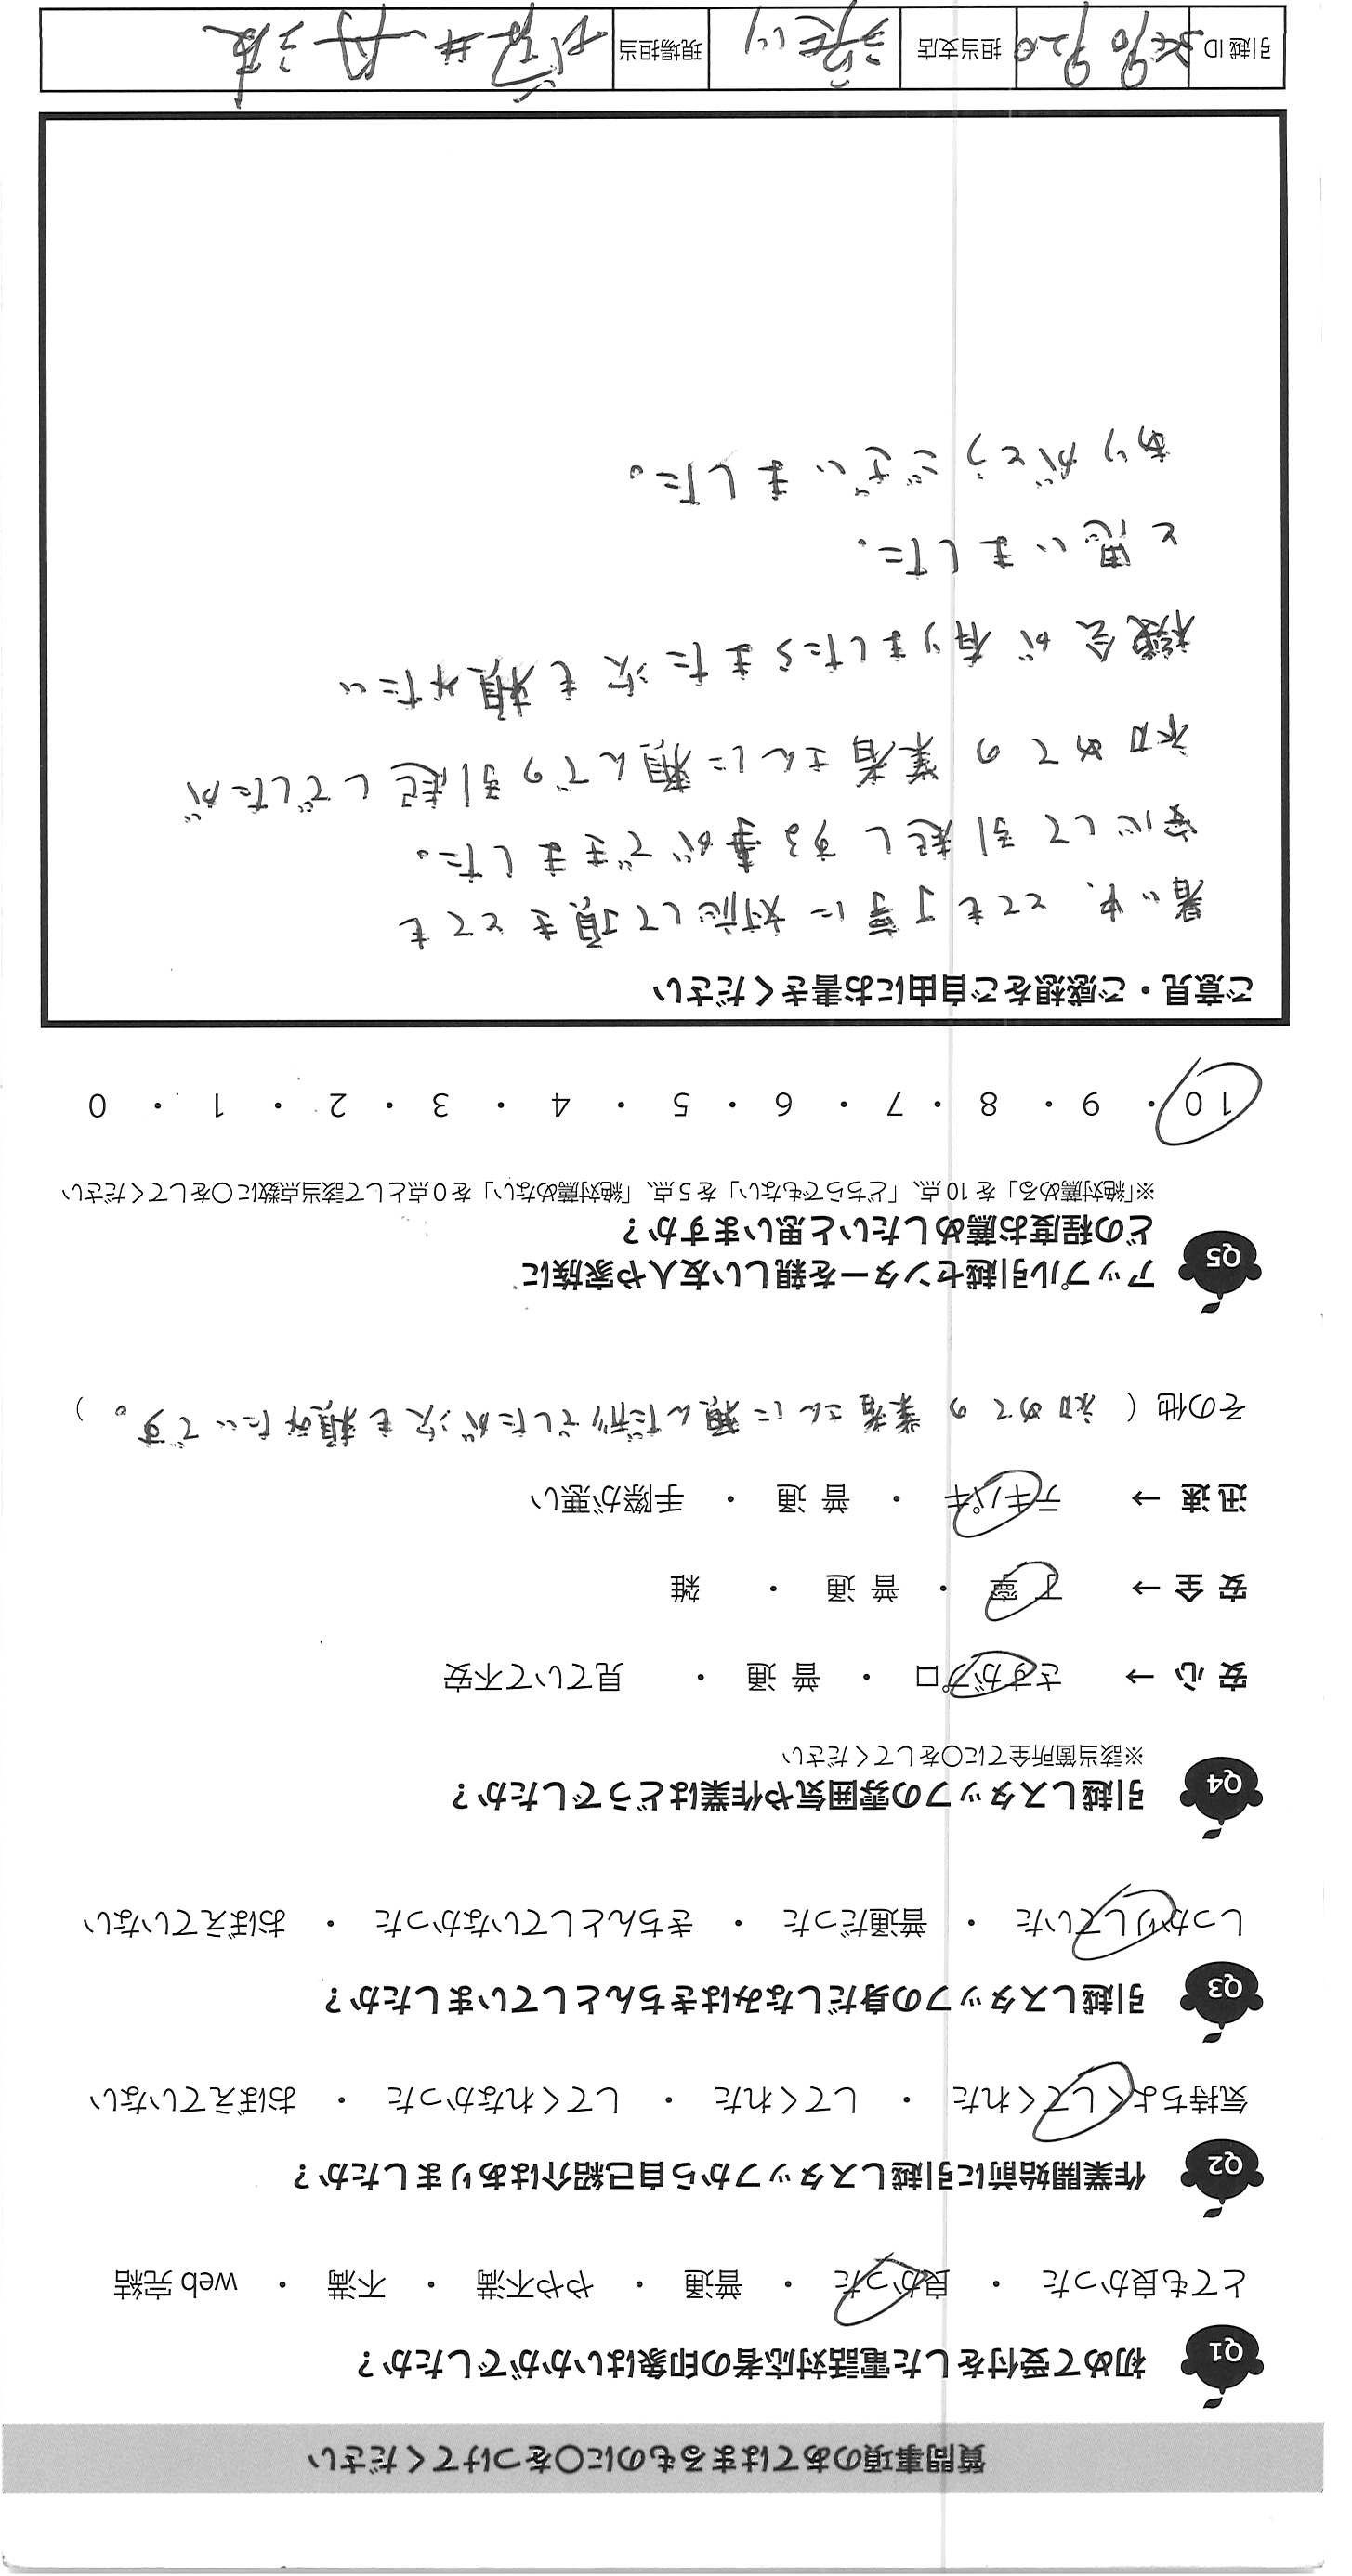 質問事項のあてはまるものに○をつけてください
Q1 初めて受付をした電話対応者の印象はいかがでしたか？
とても良かった ・ 良かった ・ 普通 ・ やや不満 ・ 不満 ・ web 完結
Q2 作業開始前に引越しスタッフから自己紹介はありましたか？
気持ちよくしてくれた ・ してくれた ・ してくれなかった ・ おぼえていない
Q3 引越しスタッフの身だしなみはきちんとしていましたか？
しっかりしていた ・ 普通だった ・ きちんとしていなかった ・ おぼえていない
Q4 引越しスタッフの雰囲気や作業はどうでしたか？
※該当箇所全てに○をしてください
安 心 → さすがプロ ・ 普 通 ・ 見ていて不安
安 全 → 丁 寧 ・ 普 通 ・ 雑
迅 速 → テキパキ ・ 普 通 ・ 手際が悪い
その他（ 初めての業者さんに頼んだ形でしたが次も頼みたいです。 ）
Q5 アップル引越センターを親しい友人や家族に
どの程度お薦めしたいと思いますか？
※「絶対薦める」を 10 点、「どちらでもない」を 5 点、「絶対薦めない」を 0 点として該当点数に○をしてください
10 ・ 9 ・ 8 ・ 7 ・ 6 ・ 5 ・ 4 ・ 3 ・ 2 ・ 1 ・ 0
ご意見・ご感想をご自由にお書きください
暑い中、とても丁寧に対応して頂きとても
安心して引越しする事ができました。
初めての業者さんに頼んでの引越しでしたが
機会が有りましたらまた次も頼みたい
と思いました。
ありがとうございました。
引越 ID 担当支店 現場担当